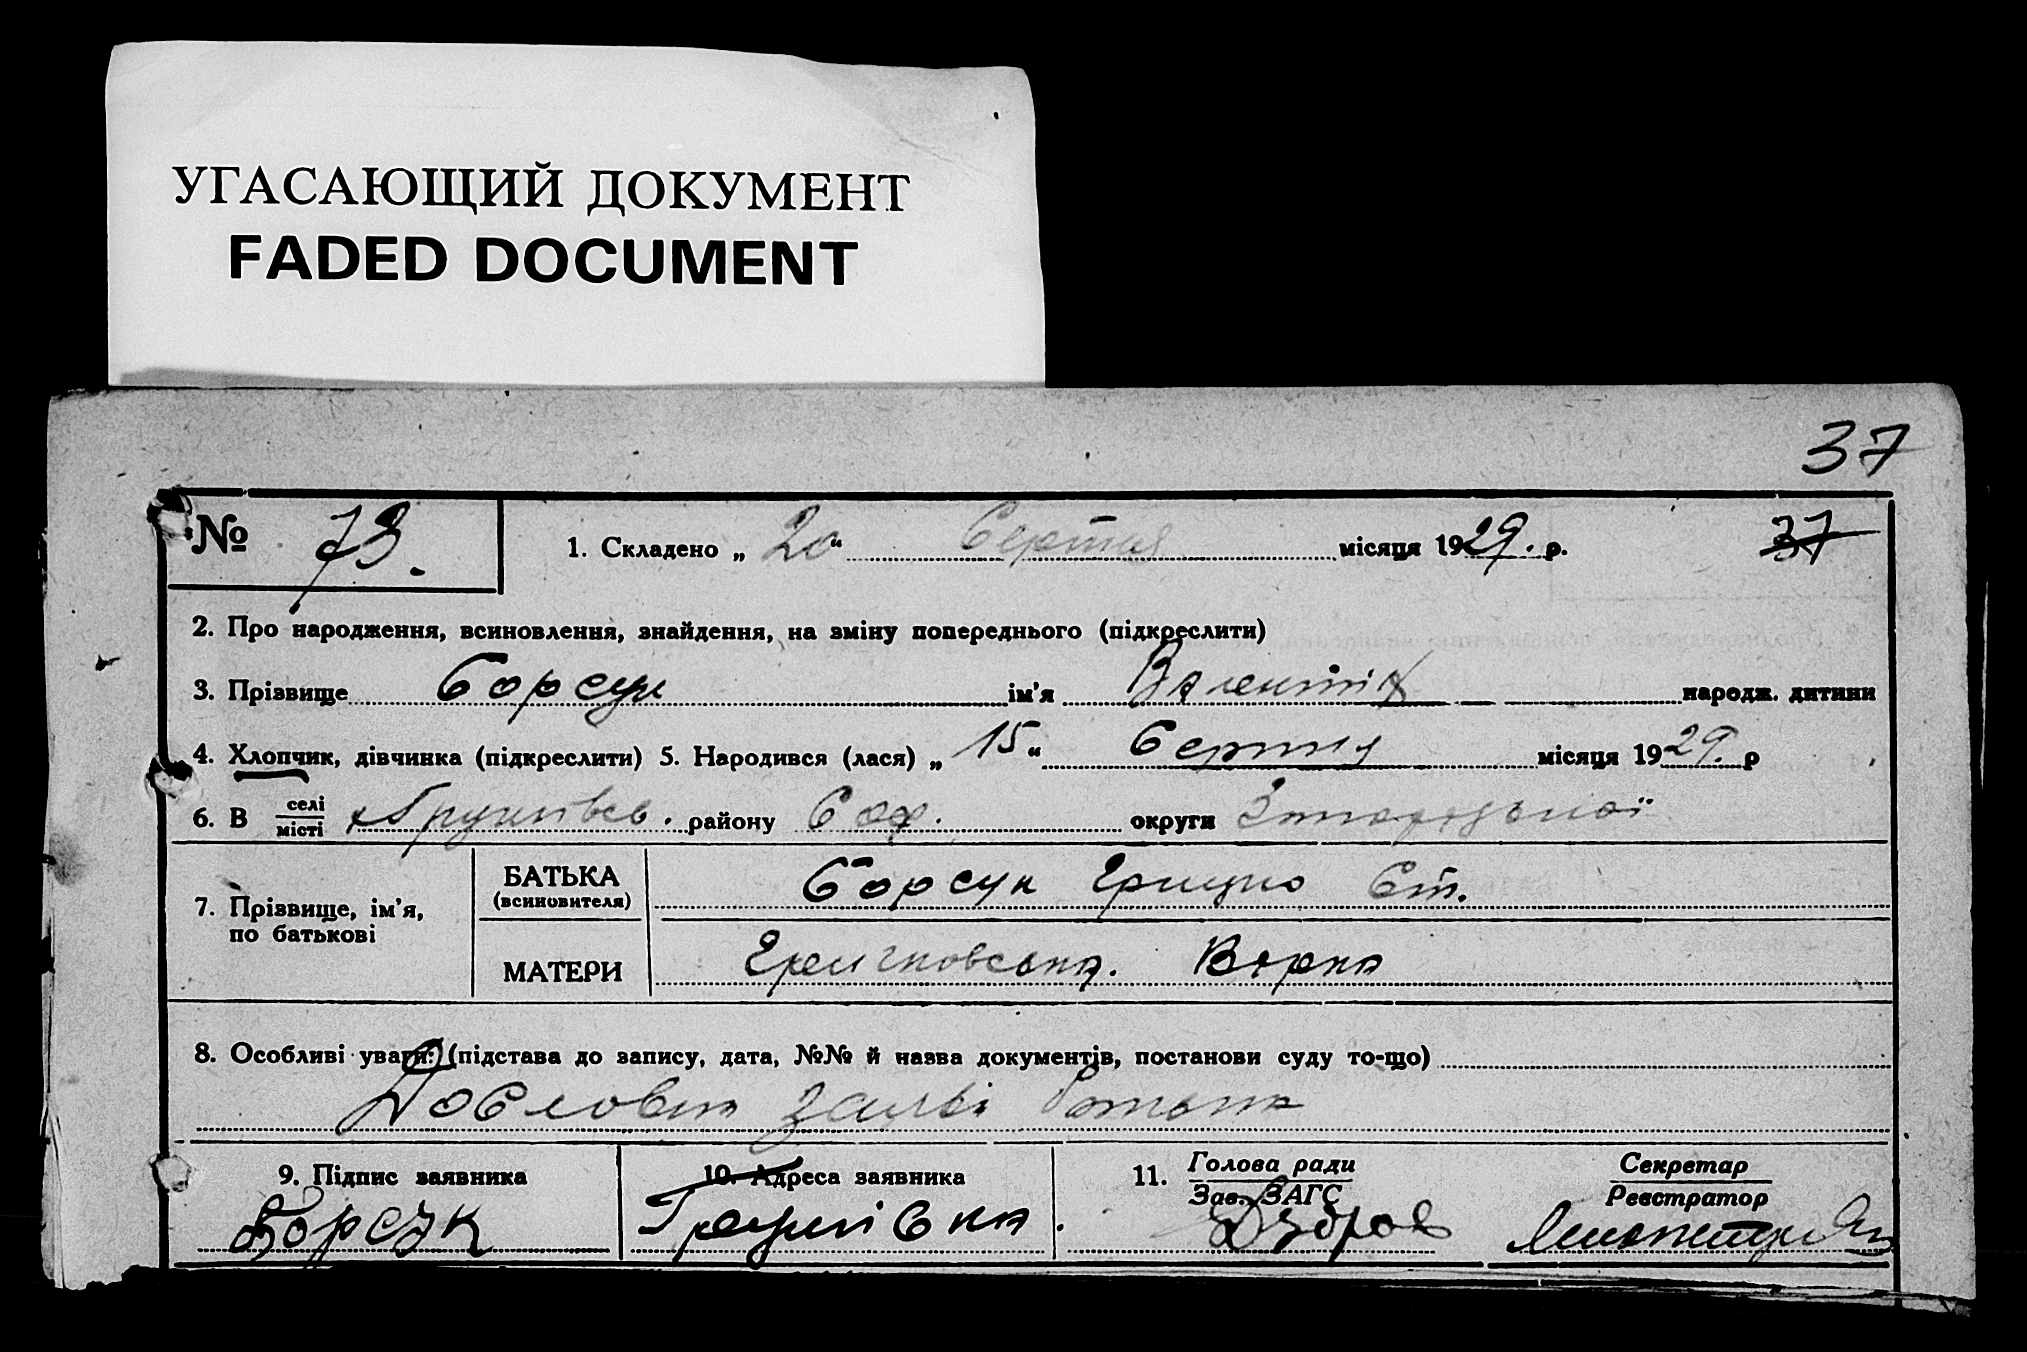 УГАСАЮЩИЙ ДОКУМЕНТ
FADED DOCUMENT
37
№ 73. 1. Складено „ 20 “ Серпня місяця 1929. р. 37
2. Про народження, всиновлення, знайдення, на зміну попереднього (підкреслити)
3. Прізвище Борсук ім’я Валентін народж. дитини
4. Хлопчик, дівчинка (підкреслити) 5. Народився (лася) „ 15 “ Серпня місяця 1929. р
6. В селі місті району Соф. округи
7. Прізвище, ім’я, по батькові
БАТЬКА (всиновителя) Борсук Грицко Ст.
МАТЕРИ
8. Особливі уваги: (підстава до запису, дата, №№ й назва документів, постанови суду то-що)
заяві батька
9. Підпис заявника 10. Адреса заявника 11. Голова ради Зав. ЗАГС Секретар Реєстратор
Борсук